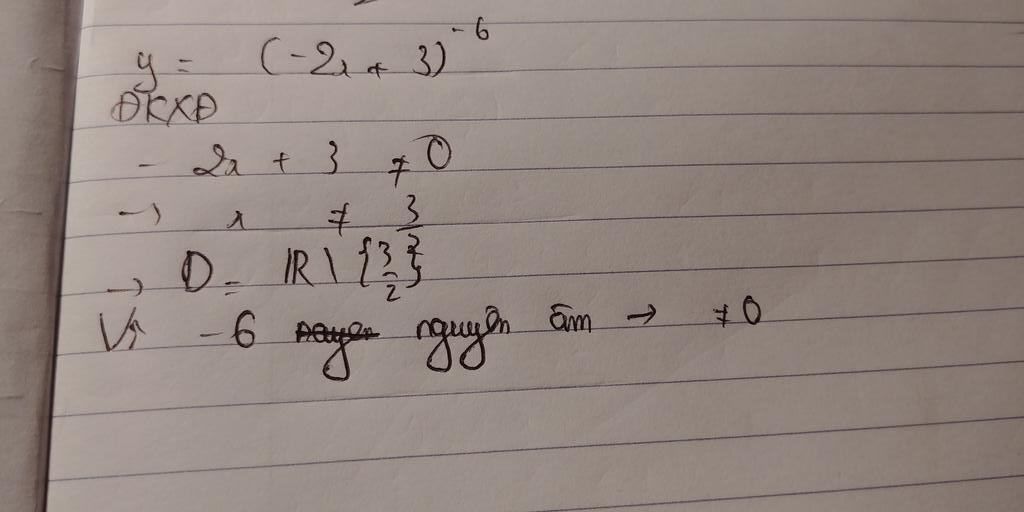 y = (-2x + 3)^-6
ĐKXĐ
- 2x + 3 ≠ 0
→ x ≠ 3/2
→ D = ℝ \ {3/2}
Vì -6 nguyên âm → ≠ 0